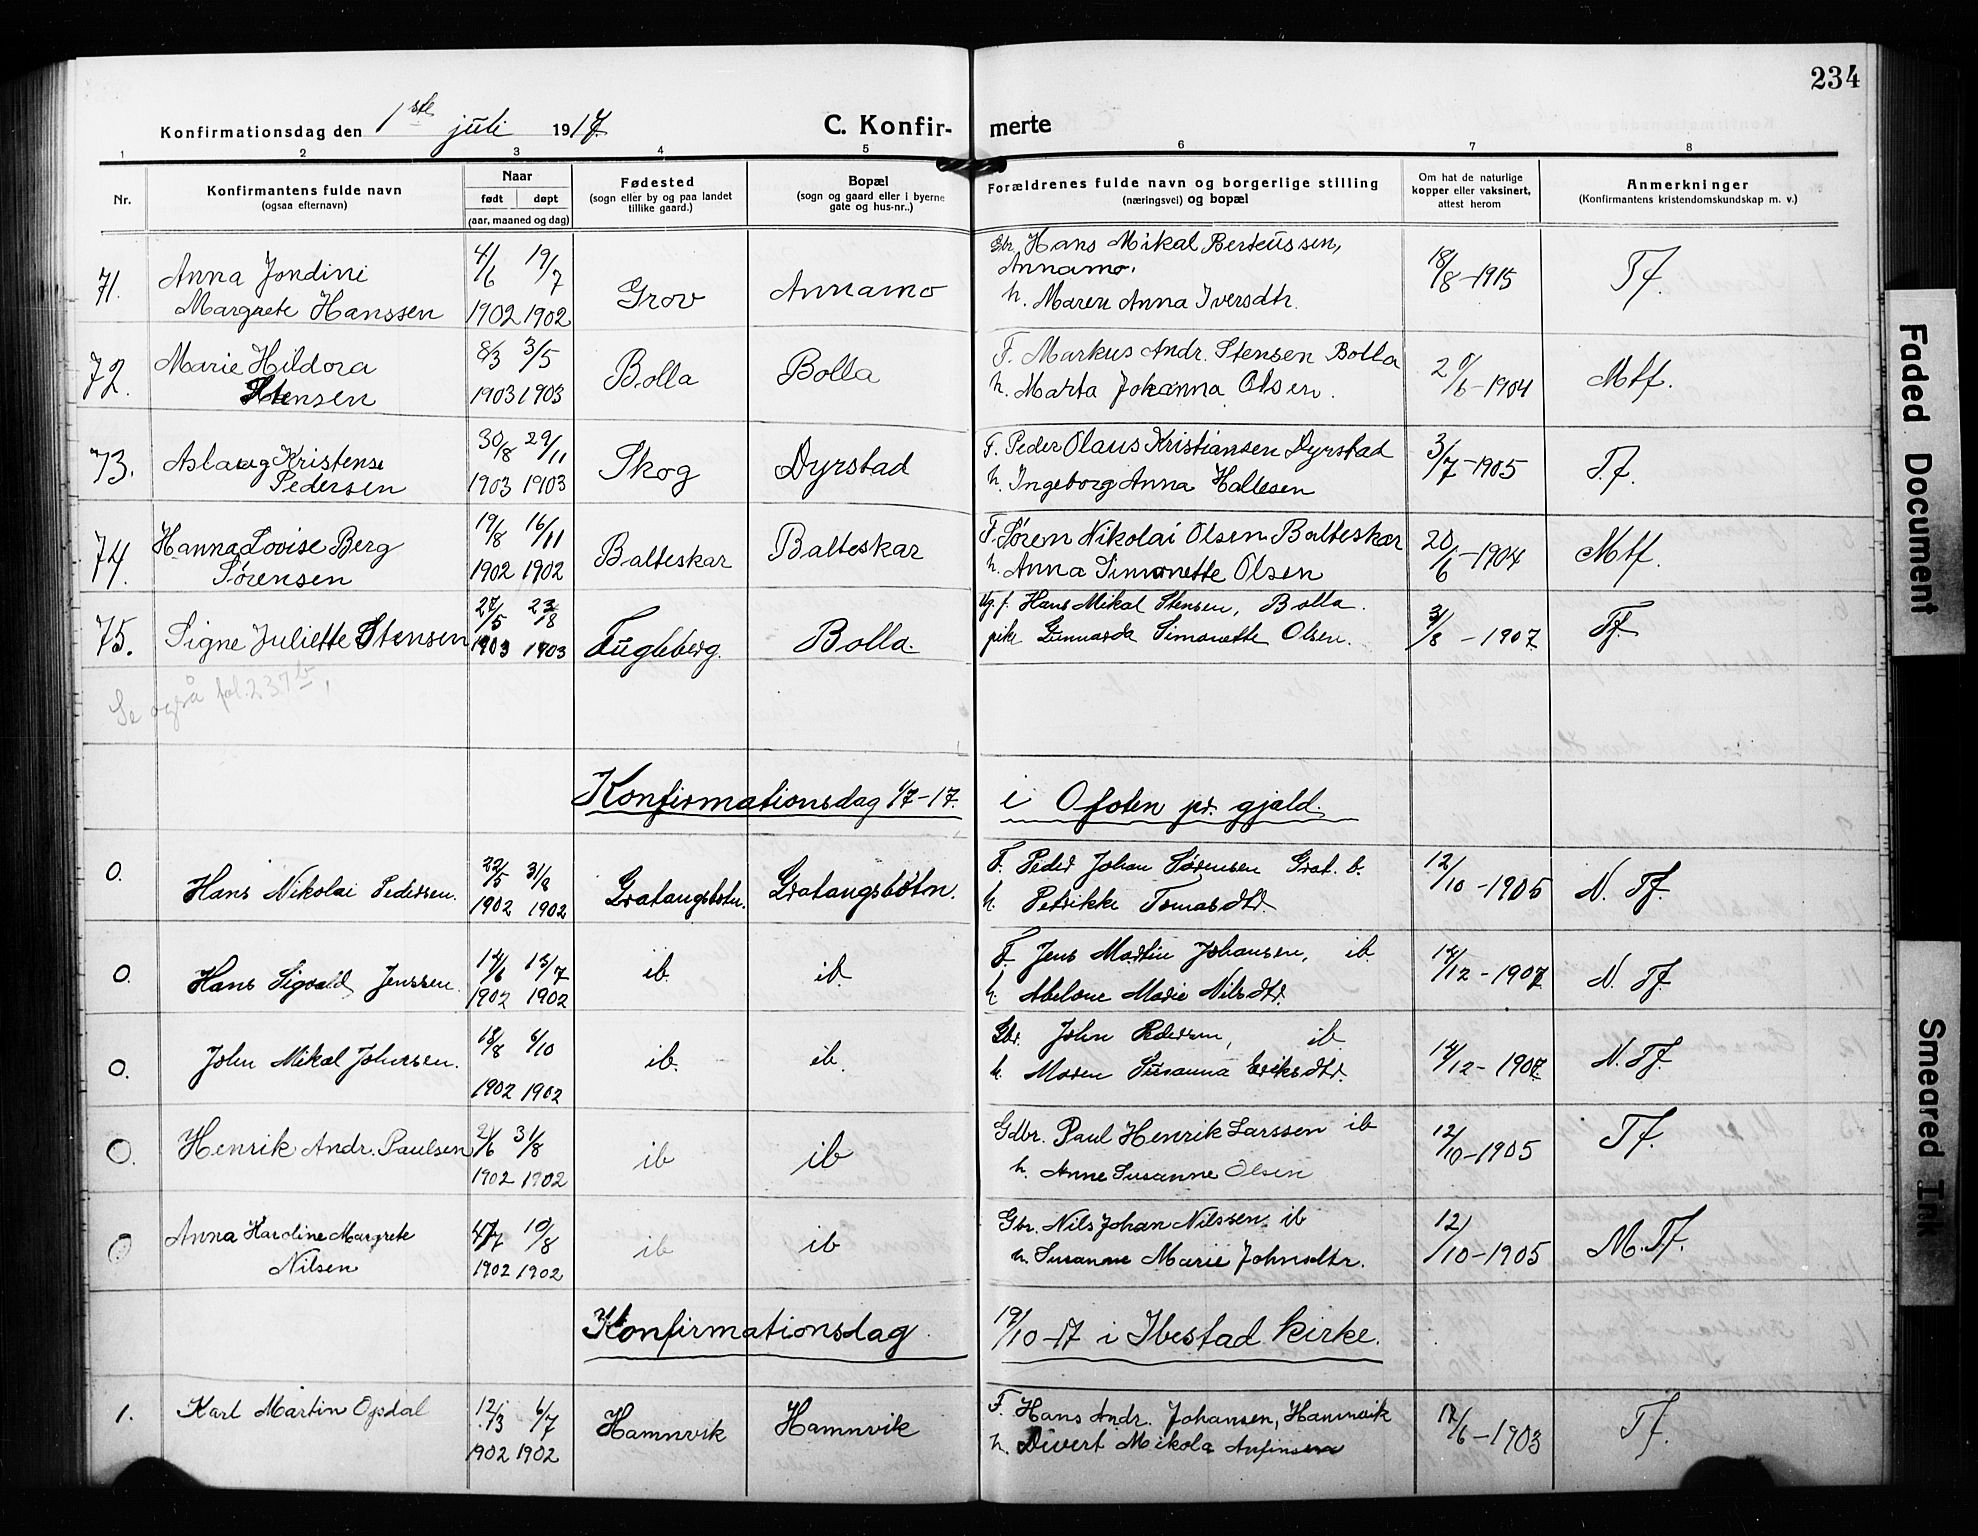 234
Konfirmationsdag den 1ste juli 1917.
C. Konfir- merte
1 2 3 4 5 6 7 8
Nr.
Konfirmantens fulde navn
(ogsaa efternavn)
Naar
født døpt
(aar, maaned og dag)
Fødested
(sogn eller by og paa landet
tillike gaard.)
Bopæl
(sogn og gaard eller i byerne
gate og hus-nr..)
Forældrenes fulde navn og borgerlige stilling
(næringsvei) og bopæl
Om hat de naturlige
kopper eller vaksinert,
attest herom
Anmerkninger
(Konfirmantens kristendomskundskap m. v.)
71. Anna Jondini 4/6 19/7 Grov Annamo Gbr. Hans Mikal Berteussen, 18/8-1915 Tf.
Annamo.
Margrete Hanssen 1902 1902 h. Maren Anna Iversdtr.
72. Marie Hildora 8/3 3/5 Bolla Bolla F. Markus Andr. Stensen Bolla 20/6-1904 Mtf.
Stensen 1903 1903 h. Marta Johanna Olsen.
73. Aslaug Kristense 30/8 29/11 Skog Dyrstad F. Peder Olaus Kristiansen Dyrstad 3/7-1905 T.f.
Pedersen 1903 1903 h. Ingeborg Anna Hallesen
74. Hanna Lovise Berg 19/8 16/11 Balteskar Balteskar F. Søren Nikolai Olsen Balteskar 20/6-1904 Mtf.
Sørensen 1902 1902 h. Anna Simonette Olsen
75. Signe Juliette Stensen 27/5 23/8 Fugleberg. Bolla. Ug. f. Hans Mikal Stensen, Bolla. 3/8-1907 Tf.
1903 1903 pike Simonette Olsen.
Se også fol. 237b,
Konfirmationsdag 1/7-17. i Ofoten pr. gjæld.
0. Hans Nikolai Pedersen. 22/5 31/8 Gratangsbotn. Gratangsbotn. F. Peder Johan Sørensen Grat. b. 12/10-1905 N. Tf.
1902 1902 h. Petrikke Tomasdtr.
0. Hans Sigvald Jenssen. 14/6 13/7 ib. ib. F. Jens Martin Johansen, ib 14/12-1907 N. Tf.
1902 1902 h. Abelone Marie Nilsdtr.
0. John Mikal Johnsen. 18/8 6/10 ib. ib. Gbr. John Pedersen, ib 14/12-1907 N. Tf.
1902 1902 h. Maren Susanna Eriksdtr.
0. Henrik Andr. Paulsen 2/6 31/8 ib ib Gdbr. Paul Henrik Larssen ib 12/10-1905 Tf.
1902 1902 h. Anne Susanne Olsen
0 Anna Hardine Margrete 4/7 10/8 ib ib Gbr. Nils Johan Nilssen ib 12/10-1905 M.Tf.
Nilsen 1902 1902 h. Susanne Marie Johnsdtr.
Konfirmationsdag 19/10-17 i Ibestad kirke.
1. Karl Martin Opdal 12/3 6/7 Hamnvik Hamnvik F. Hans Andr. Johansen, Hamnvik 17/6-1903 Tf.
1902 1902 h. Divert Mikola Anfinsen
Faded Document
Smeared Ink